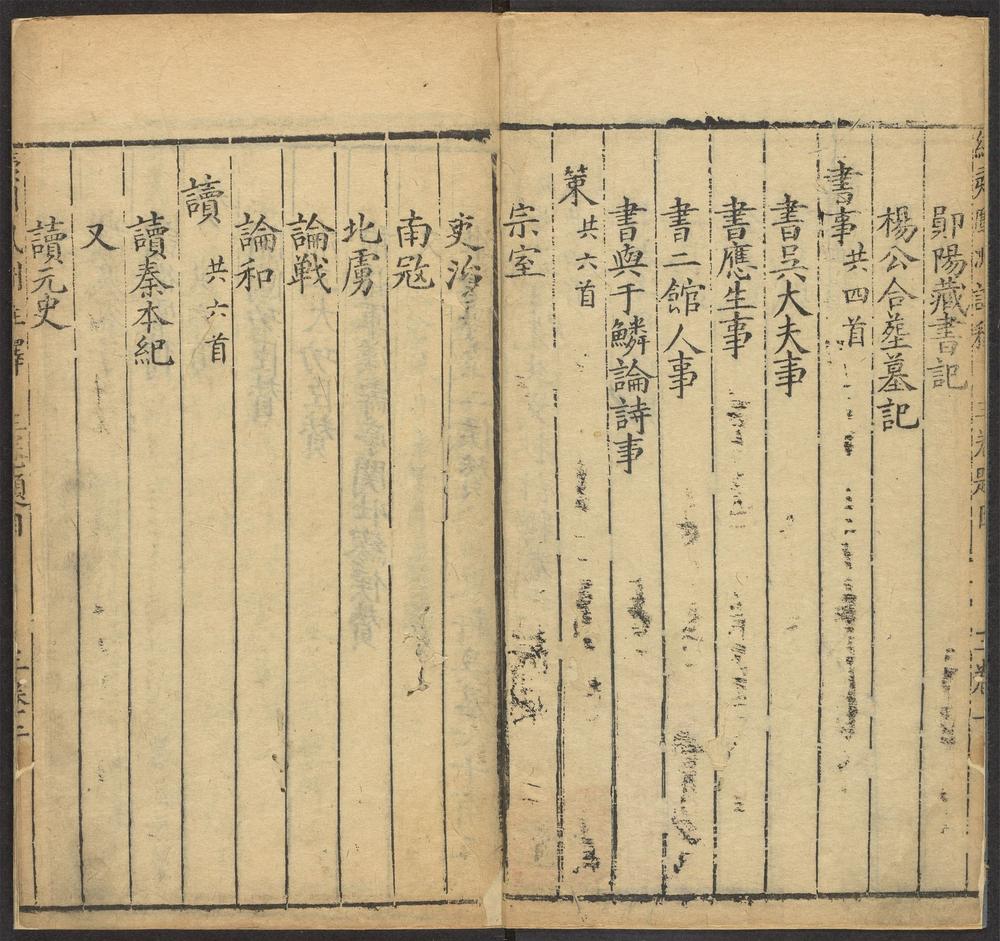 鄖陽藏書記
楊公合塟墓記
書事 共四首
書吳大夫事
書應生事
書二館人事
書與于鱗論詩事
策 共六首
宗室
吏治
南寇
北虜
論戰
論和
讀 共六首
讀秦本紀
又
讀元史